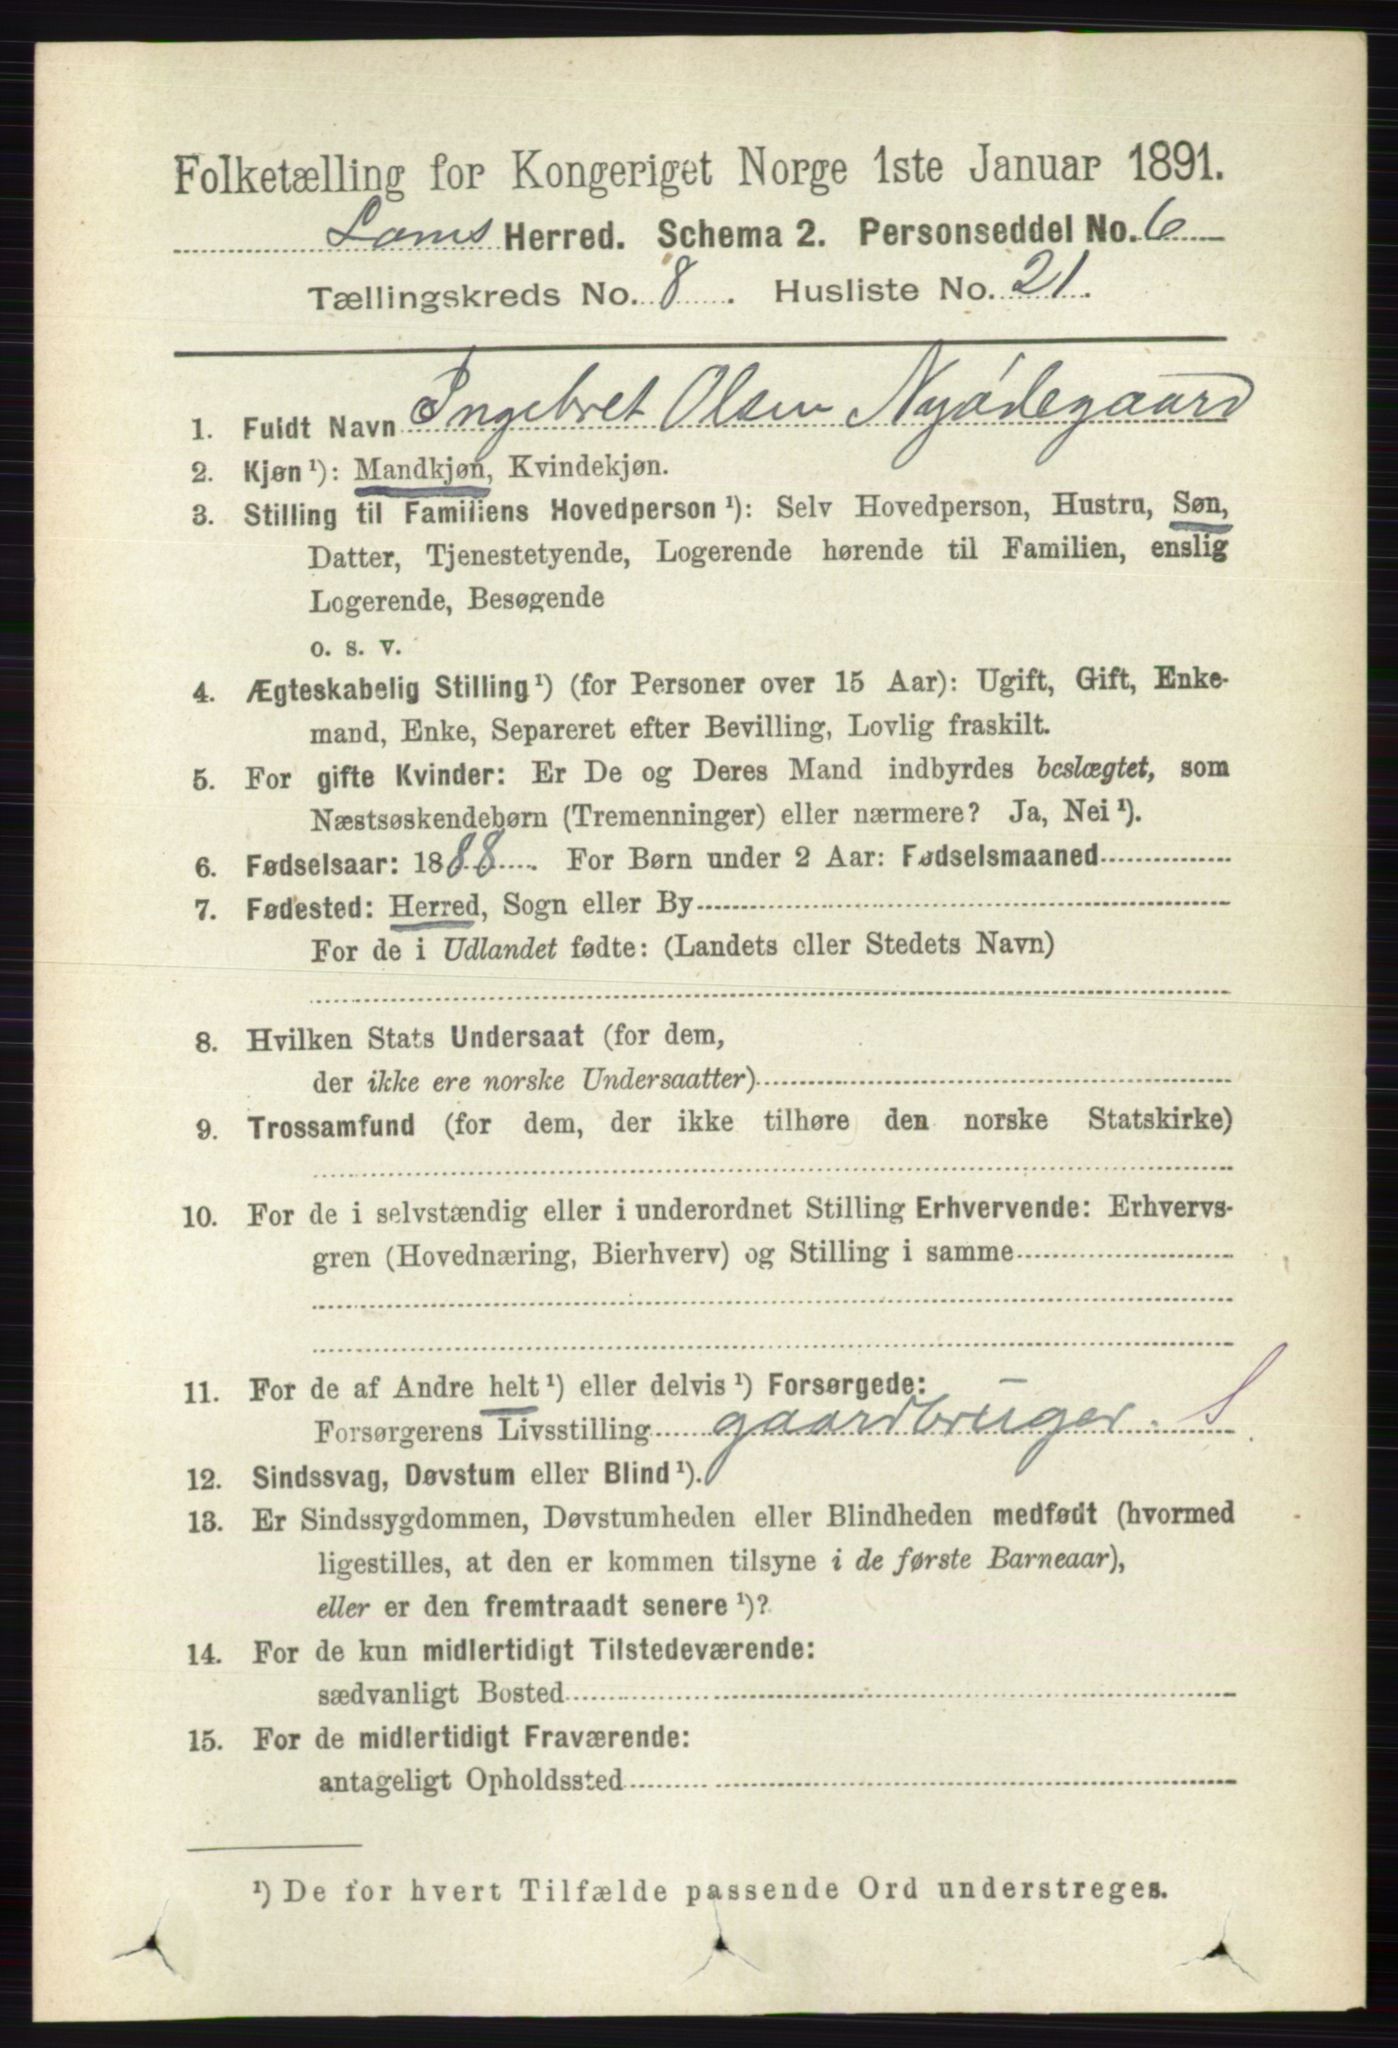 Folketælling for Kongeriget Norge 1ste Januar 1891.
Loms Herred. Schema 2. Personseddel No. 6
Tællingskreds No. 8. Husliste No. 21.
1. Fuldt Navn Ingebret Olsen Nyødegaard
2. Kjøn ¹): Mandkjøn, Kvindekjøn.
3. Stilling til Familiens Hovedperson ¹): Selv Hovedperson, Hustru, Søn,
Datter, Tjenestetyende, Logerende hørende til Familien, enslig
Logerende, Besøgende
o. s. v.
4. Ægteskabelig Stilling ¹) (for Personer over 15 Aar): Ugift, Gift, Enke-
mand, Enke, Separeret efter Bevilling, Lovlig fraskilt.
5. For gifte Kvinder: Er De og Deres Mand indbyrdes beslægtet, som
Næstsøskendebørn (Tremenninger) eller nærmere? Ja, Nei ¹).
6. Fødselsaar: 1888. For Børn under 2 Aar: Fødselsmaaned
7. Fødested: Herred, Sogn eller By
For de i Udlandet fødte: (Landets eller Stedets Navn)
8. Hvilken Stats Undersaat (for dem,
der ikke ere norske Undersaatter)
9. Trossamfund (for dem, der ikke tilhøre den norske Statskirke)
10. For de i selvstændig eller i underordnet Stilling Erhvervende: Erhvervs-
gren (Hovednæring, Bierhverv) og Stilling i samme
11. For de af Andre helt ¹) eller delvis ¹) Forsørgede:
Forsørgerens Livsstilling gaardbruger. S
12. Sindssvag, Døvstum eller Blind ¹).
13. Er Sindssygdommen, Døvstumheden eller Blindheden medfødt (hvormed
ligestilles, at den er kommen tilsyne i de første Barneaar),
eller er den fremtraadt senere ¹)?
14. For de kun midlertidigt Tilstedeværende:
sædvanligt Bosted
15. For de midlertidigt Fraværende:
antageligt Opholdssted
¹) De for hvert Tilfælde passende Ord understreges.